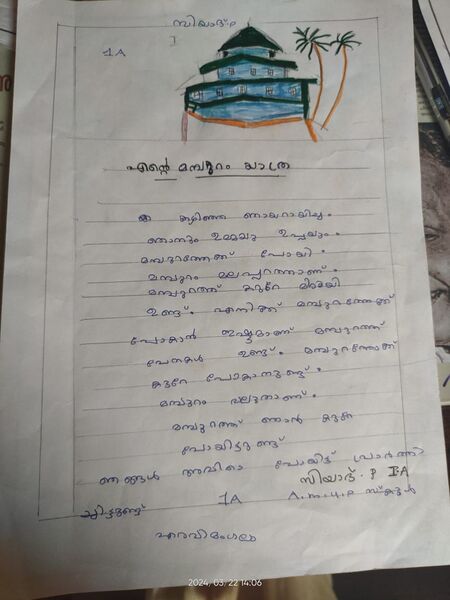 സിയാദ്.P
1A
എന്റെ മമ്പുറം യാത്ര
കഴിഞ്ഞ ഞായറായിച്ച.
ഞാനും ഉമ്മയു ഉപ്പയും.
മമ്പുറത്തേക്ക് പോയി.
മമ്പുറം മലപ്പുറത്താണ്.
മമ്പുറത്ത് കുറേ മിഠായി
ഉണ്ട്. എനിക്ക് മമ്പുറത്തേക്ക്
പോകാൻ ഇഷ്ടമാണ് മമ്പുറത്ത്
പേനകൾ ഉണ്ട്. മമ്പുറത്തേക്ക്
കുറേ പോകാനുണ്ട്.
മമ്പുറം വലുതാണ്.
മമ്പുറത്ത് ഞാൻ കുറേ
പോയിട്ടുണ്ട്
ഞങ്ങൾ അവിടെ പോയിട്ട് പ്രാർത്തി
ച്ചിട്ടുണ്ട്
സിയാദ്.P
1A
A.m.u.p സ്കൂൾ
2024, 03, 22 14:06